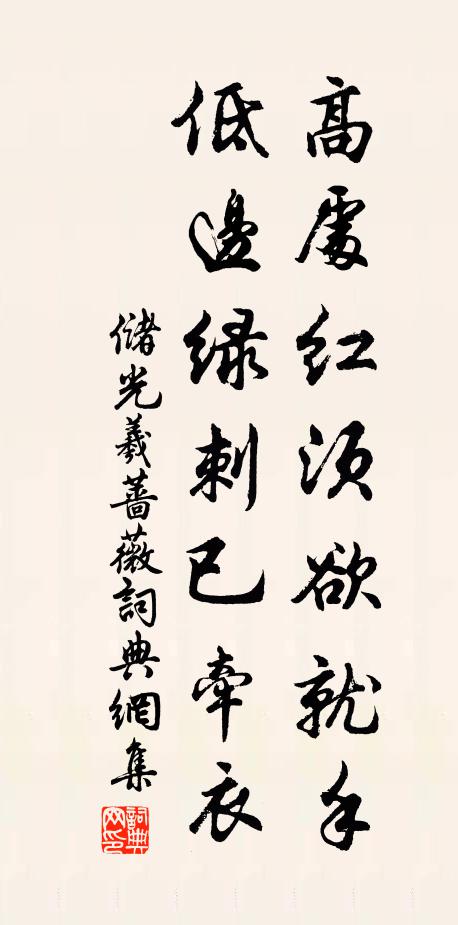 高處紅須欲就手
低邊緑刺已牽衣
儲光羲薔薇詞典網集
詞典網印